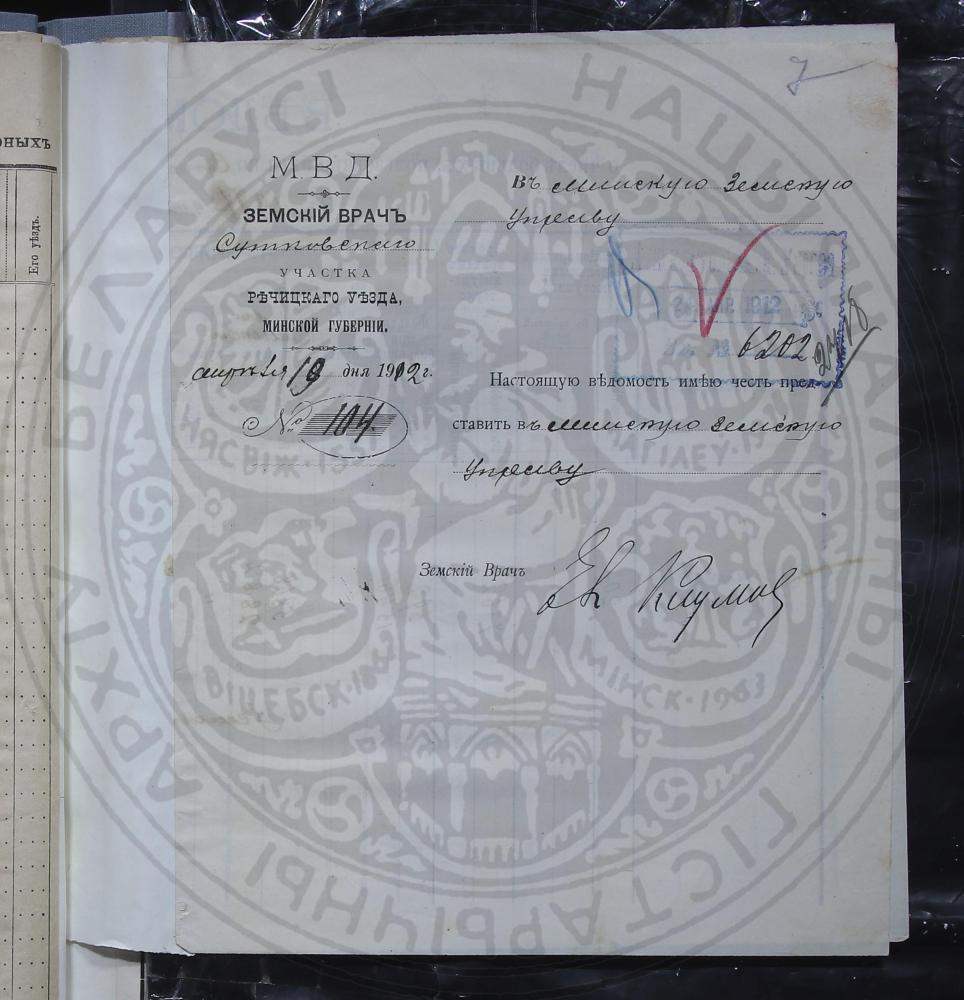 7
М. В. Д.
ЗЕМСКІЙ ВРАЧЪ
Сутковскаго
УЧАСТКА
РѢЧИЦКАГО УѢЗДА,
МИНСКОЙ ГУБЕРНІИ.
апрѣля 19 дня 1912 г.
№ 104.
Въ Минскую Земскую
Управу
АПР. 1912
Вх. № 6202
Настоящую вѣдомость имѣю честь пред-
ставить въ Минскую Земскую
Управу
Земскій Врачъ
рныхъ
Его уѣздъ.
НАЦЫЯНАЛЬНЫ ГІСТАРЫЧНЫ АРХІЎ БЕЛАРУСІ
НЯСВІЖ
МАГІЛЕЎ
ВІЦЕБСК
МІНСК·1963